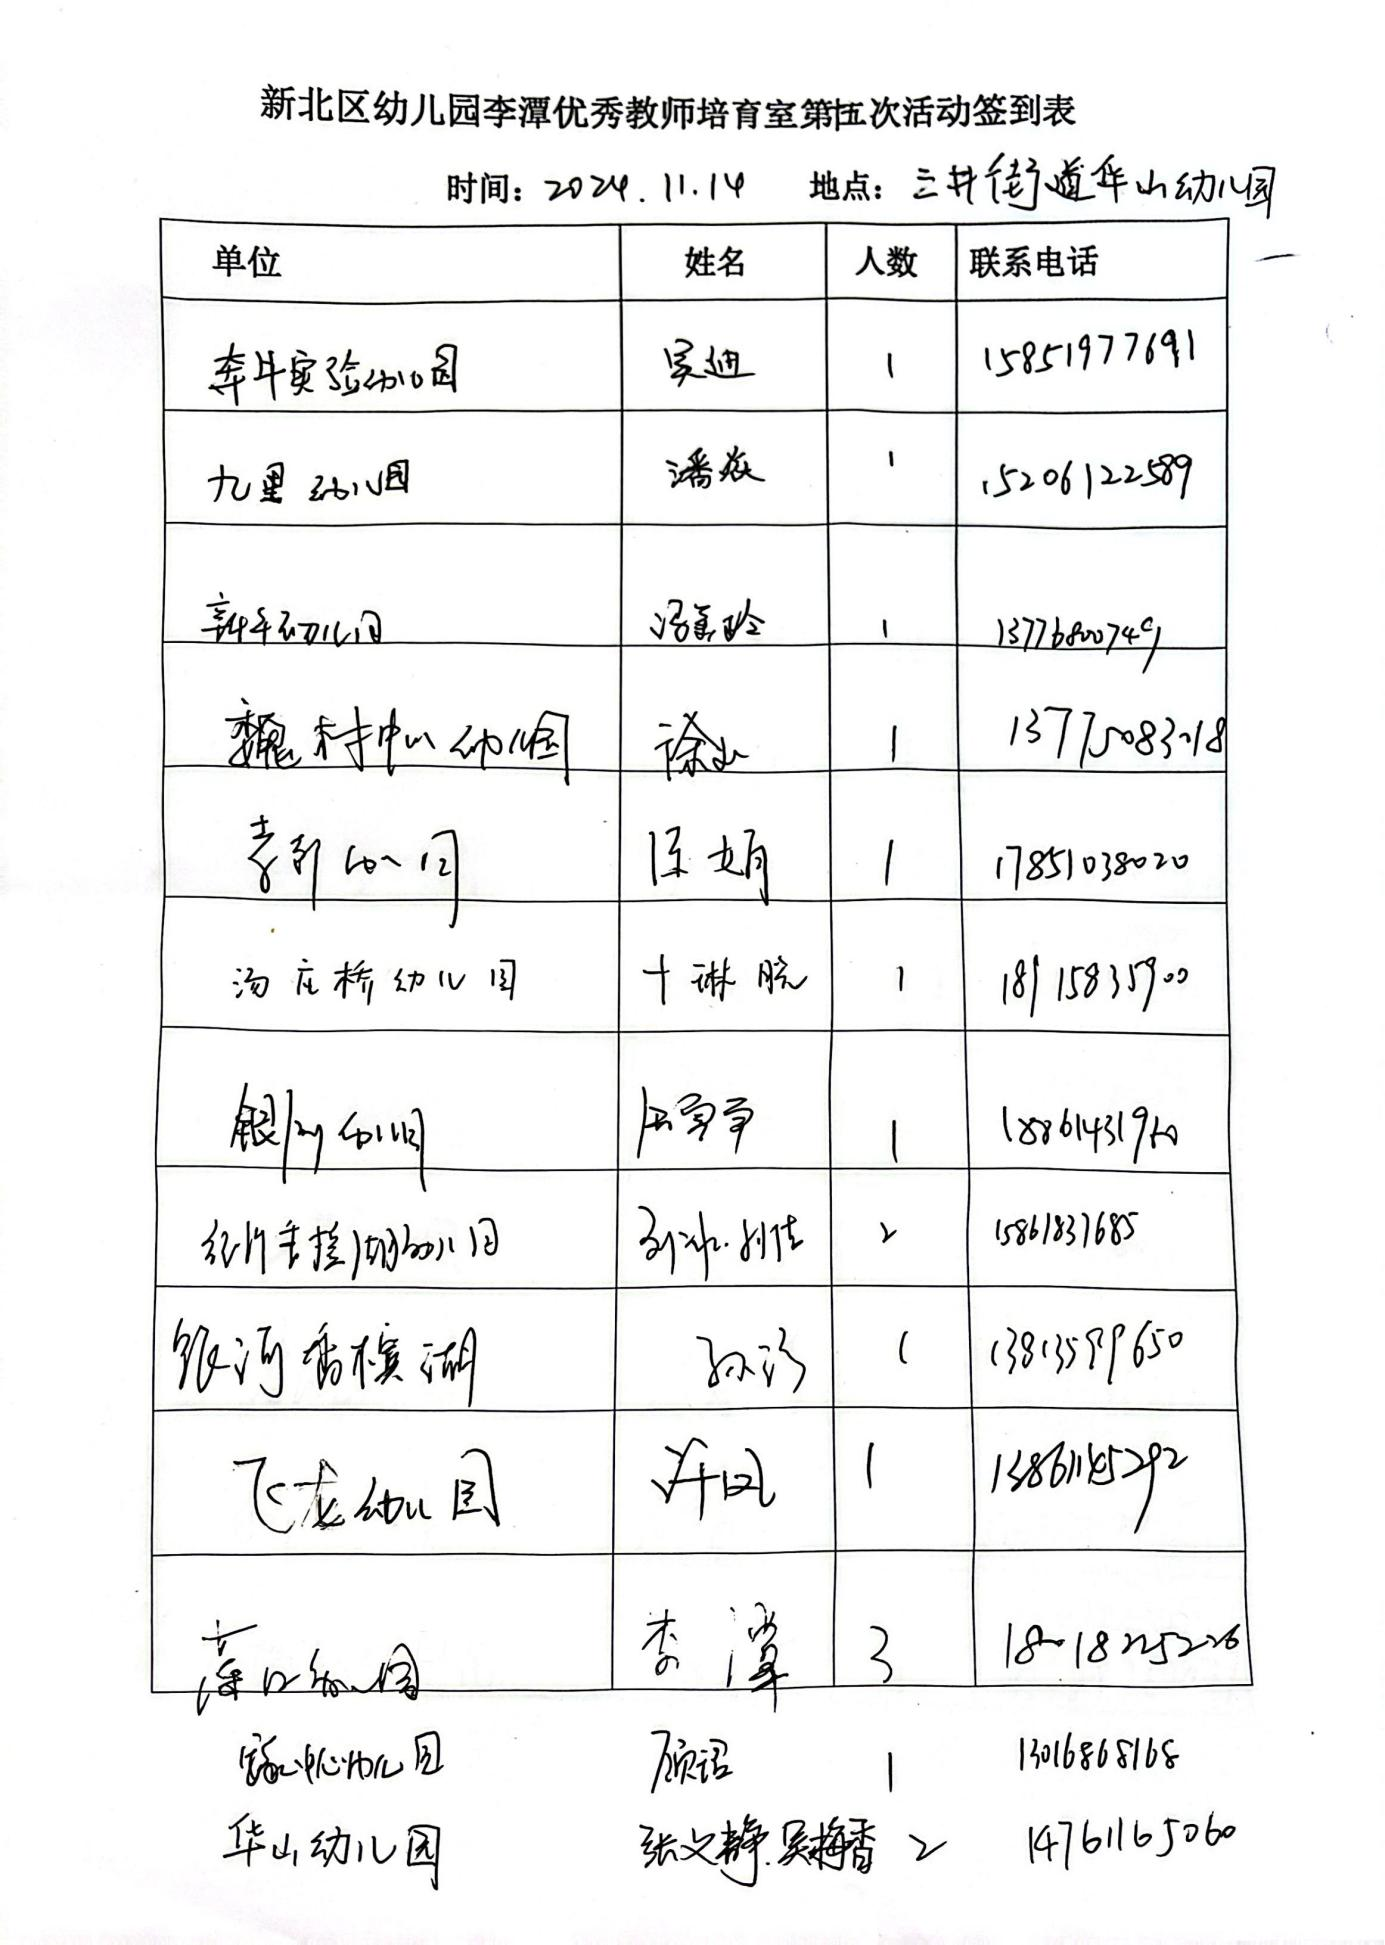 新北区幼儿园李潭优秀教师培育室第五次活动签到表
时间：2024.11.14 地点：三井街道华山幼儿园
单位 姓名 人数 联系电话
奔牛实验幼儿园 吴迪 1 15851977691
九里幼儿园 潘焱 1 15206122589
幼儿园 1 13776800749
魏村中心幼儿园 徐 1 13775083018
孝都幼儿园 陈娟 1 17851038020
汤庄桥幼儿园 琳 1 18915835900
银河幼儿园 1
银河香槟湖幼儿园 2 15861837685
银河香槟湖 孙 1 13813599650
飞龙幼儿园 许凤 1
幼儿园 李潭 3 18018225226
中心幼儿园 顾 1 13016868168
华山幼儿园 张文静.吴梅香 2 14761165060